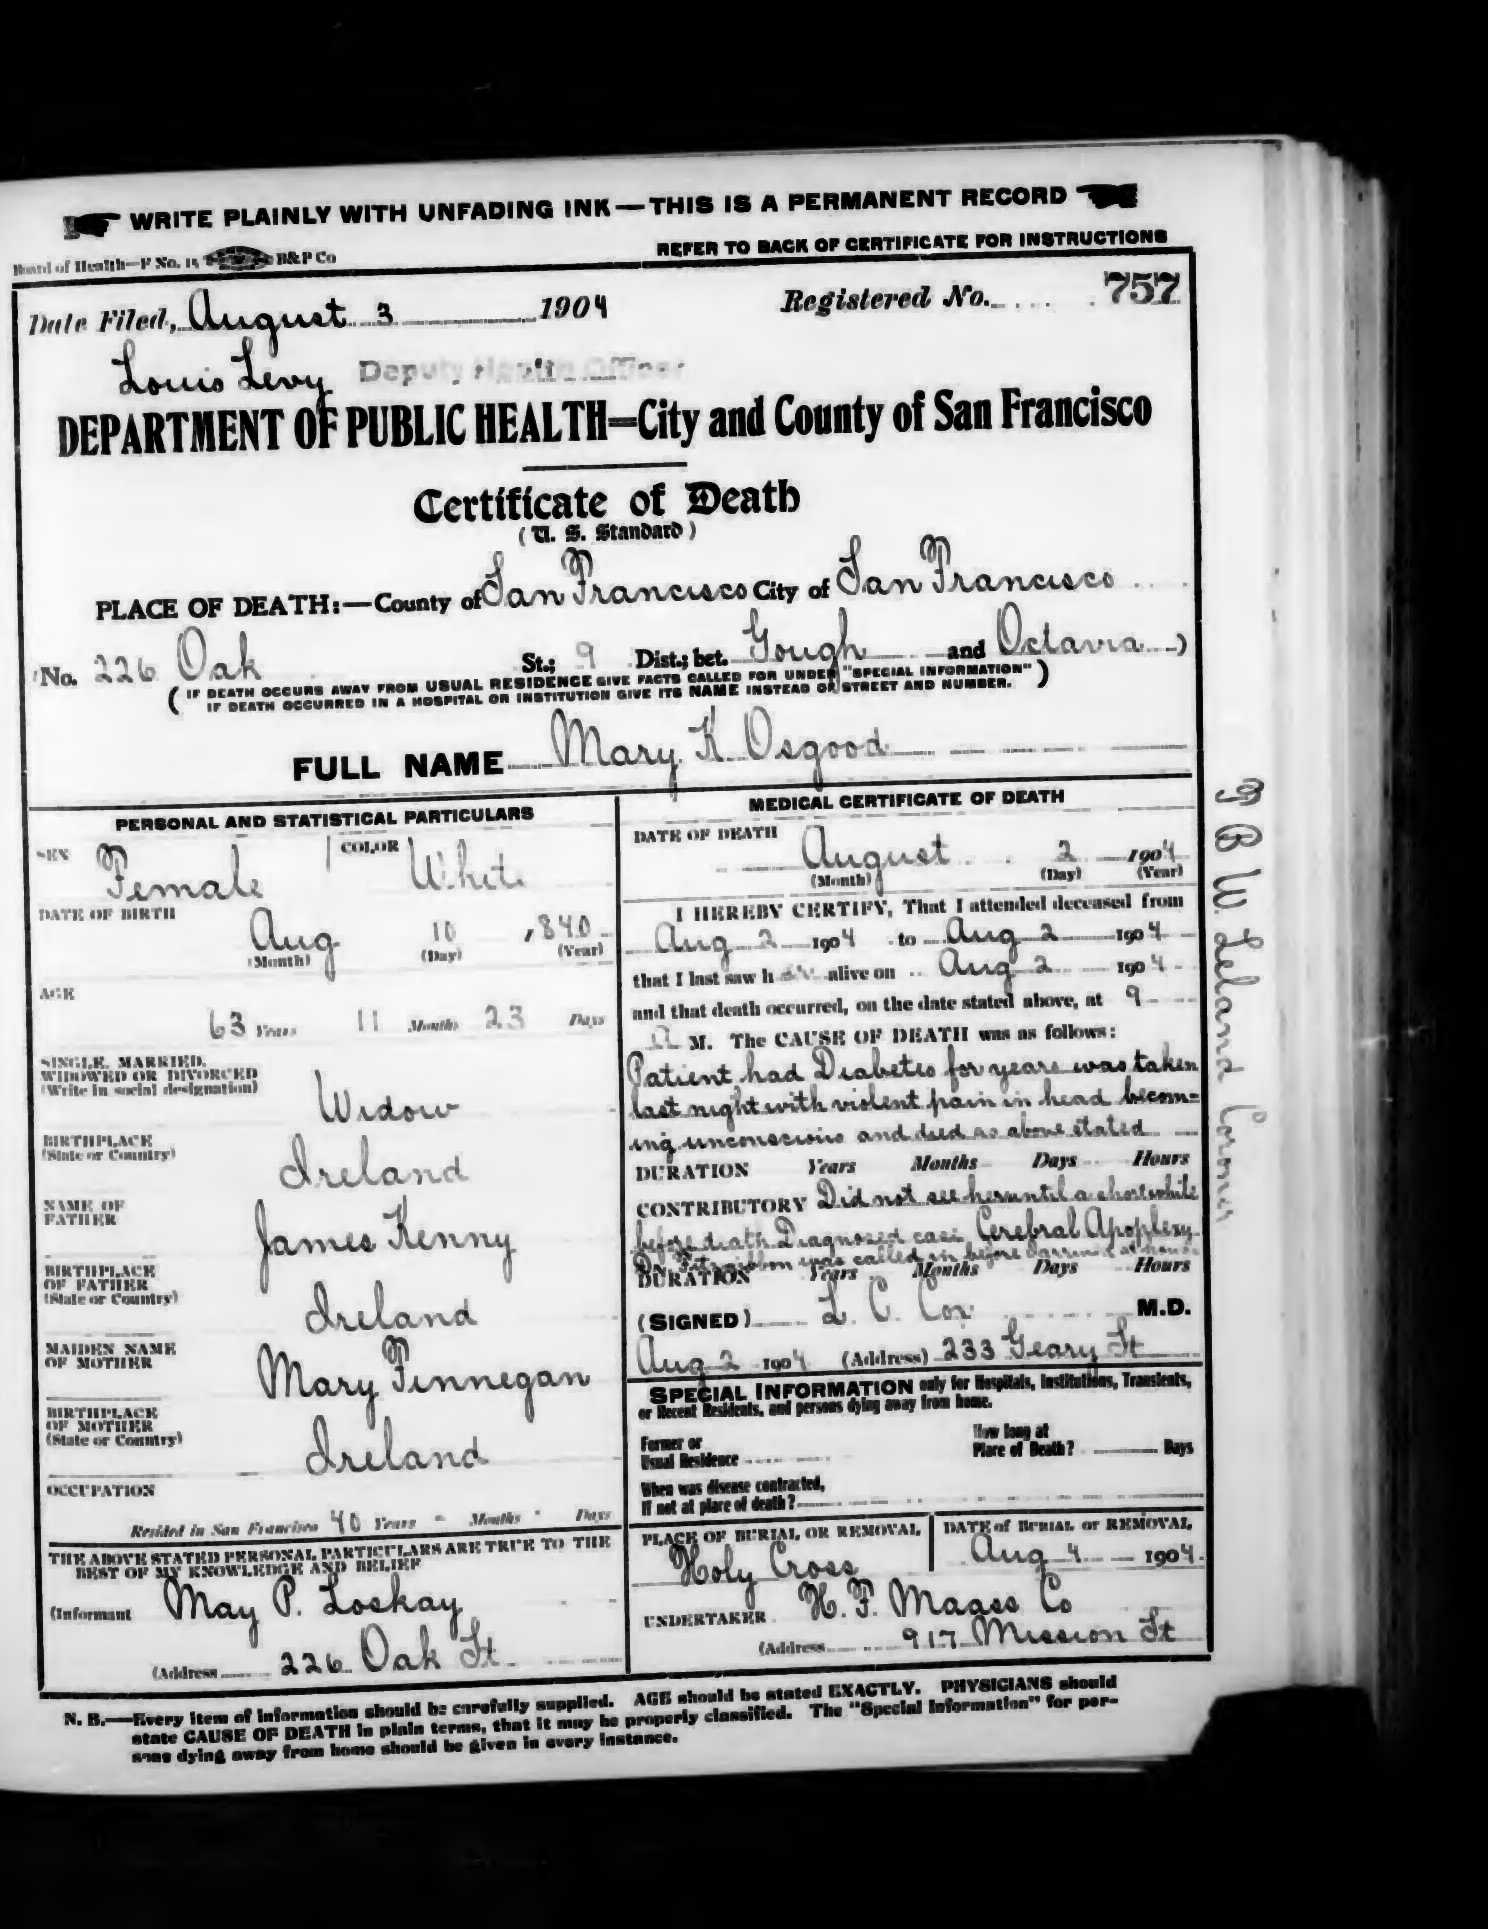 WRITE PLAINLY WITH UNFADING INK—THIS IS A PERMANENT RECORD
Board of Health—F No. 15 B&P Co
REFER TO BACK OF CERTIFICATE FOR INSTRUCTIONS
Date Filed, August 3 1904
Registered No. 757
Louis Levy Deputy Health Officer
DEPARTMENT OF PUBLIC HEALTH=City and County of San Francisco
Certificate of Death
(U. S. Standard)
PLACE OF DEATH:—County of San Francisco City of San Francisco
No. 226 Oak St.; 9 Dist.; bet. Gough and Octavia)
(IF DEATH OCCURS AWAY FROM USUAL RESIDENCE GIVE FACTS CALLED FOR UNDER "SPECIAL INFORMATION"
IF DEATH OCCURRED IN A HOSPITAL OR INSTITUTION GIVE ITS NAME INSTEAD OF STREET AND NUMBER.)
FULL NAME Mary K. Osgood
PERSONAL AND STATISTICAL PARTICULARS
SEX Female COLOR White
DATE OF BIRTH
Aug 10 , 840
(Month) (Day) (Year)
AGE
63 Years 11 Months 23 Days
SINGLE, MARRIED,
WIDOWED OR DIVORCED
(Write in social designation)
Widow
BIRTHPLACE
(State or Country)
Ireland
NAME OF
FATHER
James Kenny
BIRTHPLACE
OF FATHER
(State or Country)
Ireland
MAIDEN NAME
OF MOTHER
Mary Finnegan
BIRTHPLACE
OF MOTHER
(State or Country)
Ireland
OCCUPATION
Resided in San Francisco 40 Years - Months - Days
THE ABOVE STATED PERSONAL PARTICULARS ARE TRUE TO THE
BEST OF MY KNOWLEDGE AND BELIEF
(Informant May P. Loskay
(Address 226 Oak St
MEDICAL CERTIFICATE OF DEATH
DATE OF DEATH
August 2 1904
(Month) (Day) (Year)
I HEREBY CERTIFY, That I attended deceased from
Aug 2 1904 to Aug 2 1904
that I last saw her alive on Aug 2 1904
and that death occurred, on the date stated above, at 9
a M. The CAUSE OF DEATH was as follows:
Patient had Diabetes for years was taken
last night with violent pain in head becom=
ing unconscious and died as above stated
DURATION Years Months Days Hours
CONTRIBUTORY Did not see her until a short while
before death Diagnosed case Cerebral Apoplexy
Dr. Fitzgibbon was called in before at house
DURATION Years Months Days Hours
(SIGNED) L. C. Cox M.D.
Aug 2 1904 (Address) 233 Geary St
SPECIAL INFORMATION only for Hospitals, Institutions, Transients,
or Recent Residents, and persons dying away from home.
Former or
Usual Residence
How long at
Place of Death? Days
When was disease contracted,
If not at place of death?
PLACE OF BURIAL OR REMOVAL
Holy Cross
DATE of BURIAL or REMOVAL
Aug 4 1904
UNDERTAKER H. F. Maass Co
(Address 917 Mission St
N. B.—Every item of information should be carefully supplied. AGE should be stated EXACTLY. PHYSICIANS should
state CAUSE OF DEATH in plain terms, that it may be properly classified. The "Special Information" for per-
sons dying away from home should be given in every instance.
B W. Leland Coroner